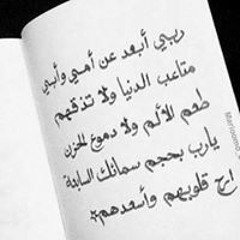 ربي أبعد عن أمي وأبي
متاعب الدنيا ولا تذقهم
طعم الألم ولا دموع الحزن
يارب بحجم سمائك السابعة
ارح قلوبهم وأسعدهم